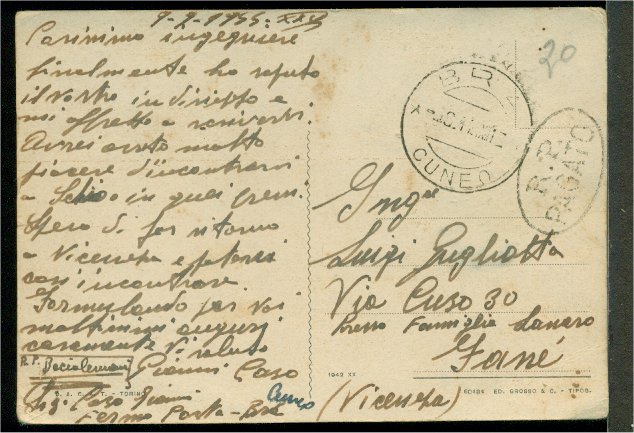 Carissimo ingegnere
finalmente ho saputo
il vostro indirizzo e
mi affretto a scrivervi.
Avrei avuto molto
piacere d'incontrarvi
a Schio in quei
Spero di far ritorno
a Vicenza e potervi
così incontrare
Formulando per voi
moltissimi auguri
caramente Vi saluto
Gianni Caso
R.P.
Caso Gianni
Fermo Posta - Bra
Cuneo
20
BRA
CUNEO
R.P.
PAGATO
Ing
Luigi Gugliotta
Via Cuso 30
Presso Famiglia
Fané
(Vicenza)
1942 XX
TORINO
ED. GROSSO & C. - TIPOG.